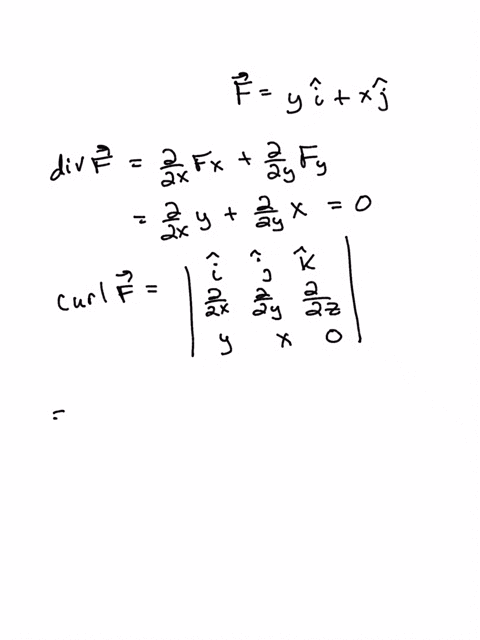 F⃗ = y î + x ĵ
div F⃗ = ∂/∂x Fx + ∂/∂y Fy
= ∂/∂x y + ∂/∂y x = 0
curl F⃗ = | î ĵ k̂ |
| ∂/∂x ∂/∂y ∂/∂z |
| y x 0 |
=